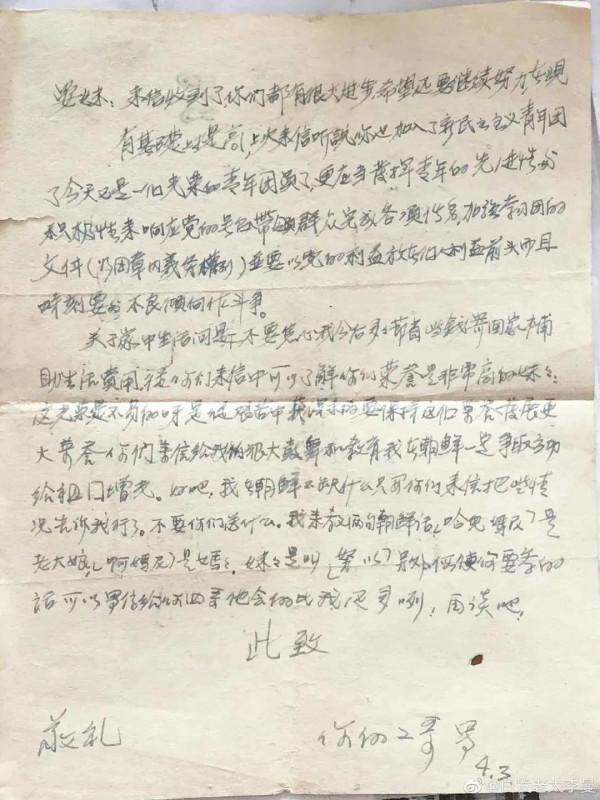 妹：来信收到了，你们都有很大进步，希望还要继续努力在现
有基础上提高，上次来信听说你也加入了新民主主义青年团
了今天已是一位光荣的青年团员了，更应当发挥青年的先进性与
积极性来响应党的号召带领群众完成各项任务，加强学习团的
文件（以团章内义务权利）并要以党的利益放在个人利益前头而且
时刻要与不良倾向作斗争。
关于家中生活问题，不要焦心我今后多多节省些钱寄回家补
助生活费用，从你们来信中可以了解你们荣誉是非常高的妹々：
这光荣是不易的呀是从艰苦中获得来的要保持这个荣誉发展更
大荣誉你们来信给我的很大鼓舞和教育我在朝鲜一定争取立功
给祖国增光。好吧，我在朝鲜不缺什么只要你们来信把些情
况告诉我好了。不要你们送什么。我来教两句朝鲜话，哈免妈尼）是
老大娘，（阿妈尼）是妈々，妹々是叫（努以）另外假使你要学的
话可以写信给你四哥他会的比我还多咧！再谈吧，
此致
敬礼
你的二哥 写
4.3